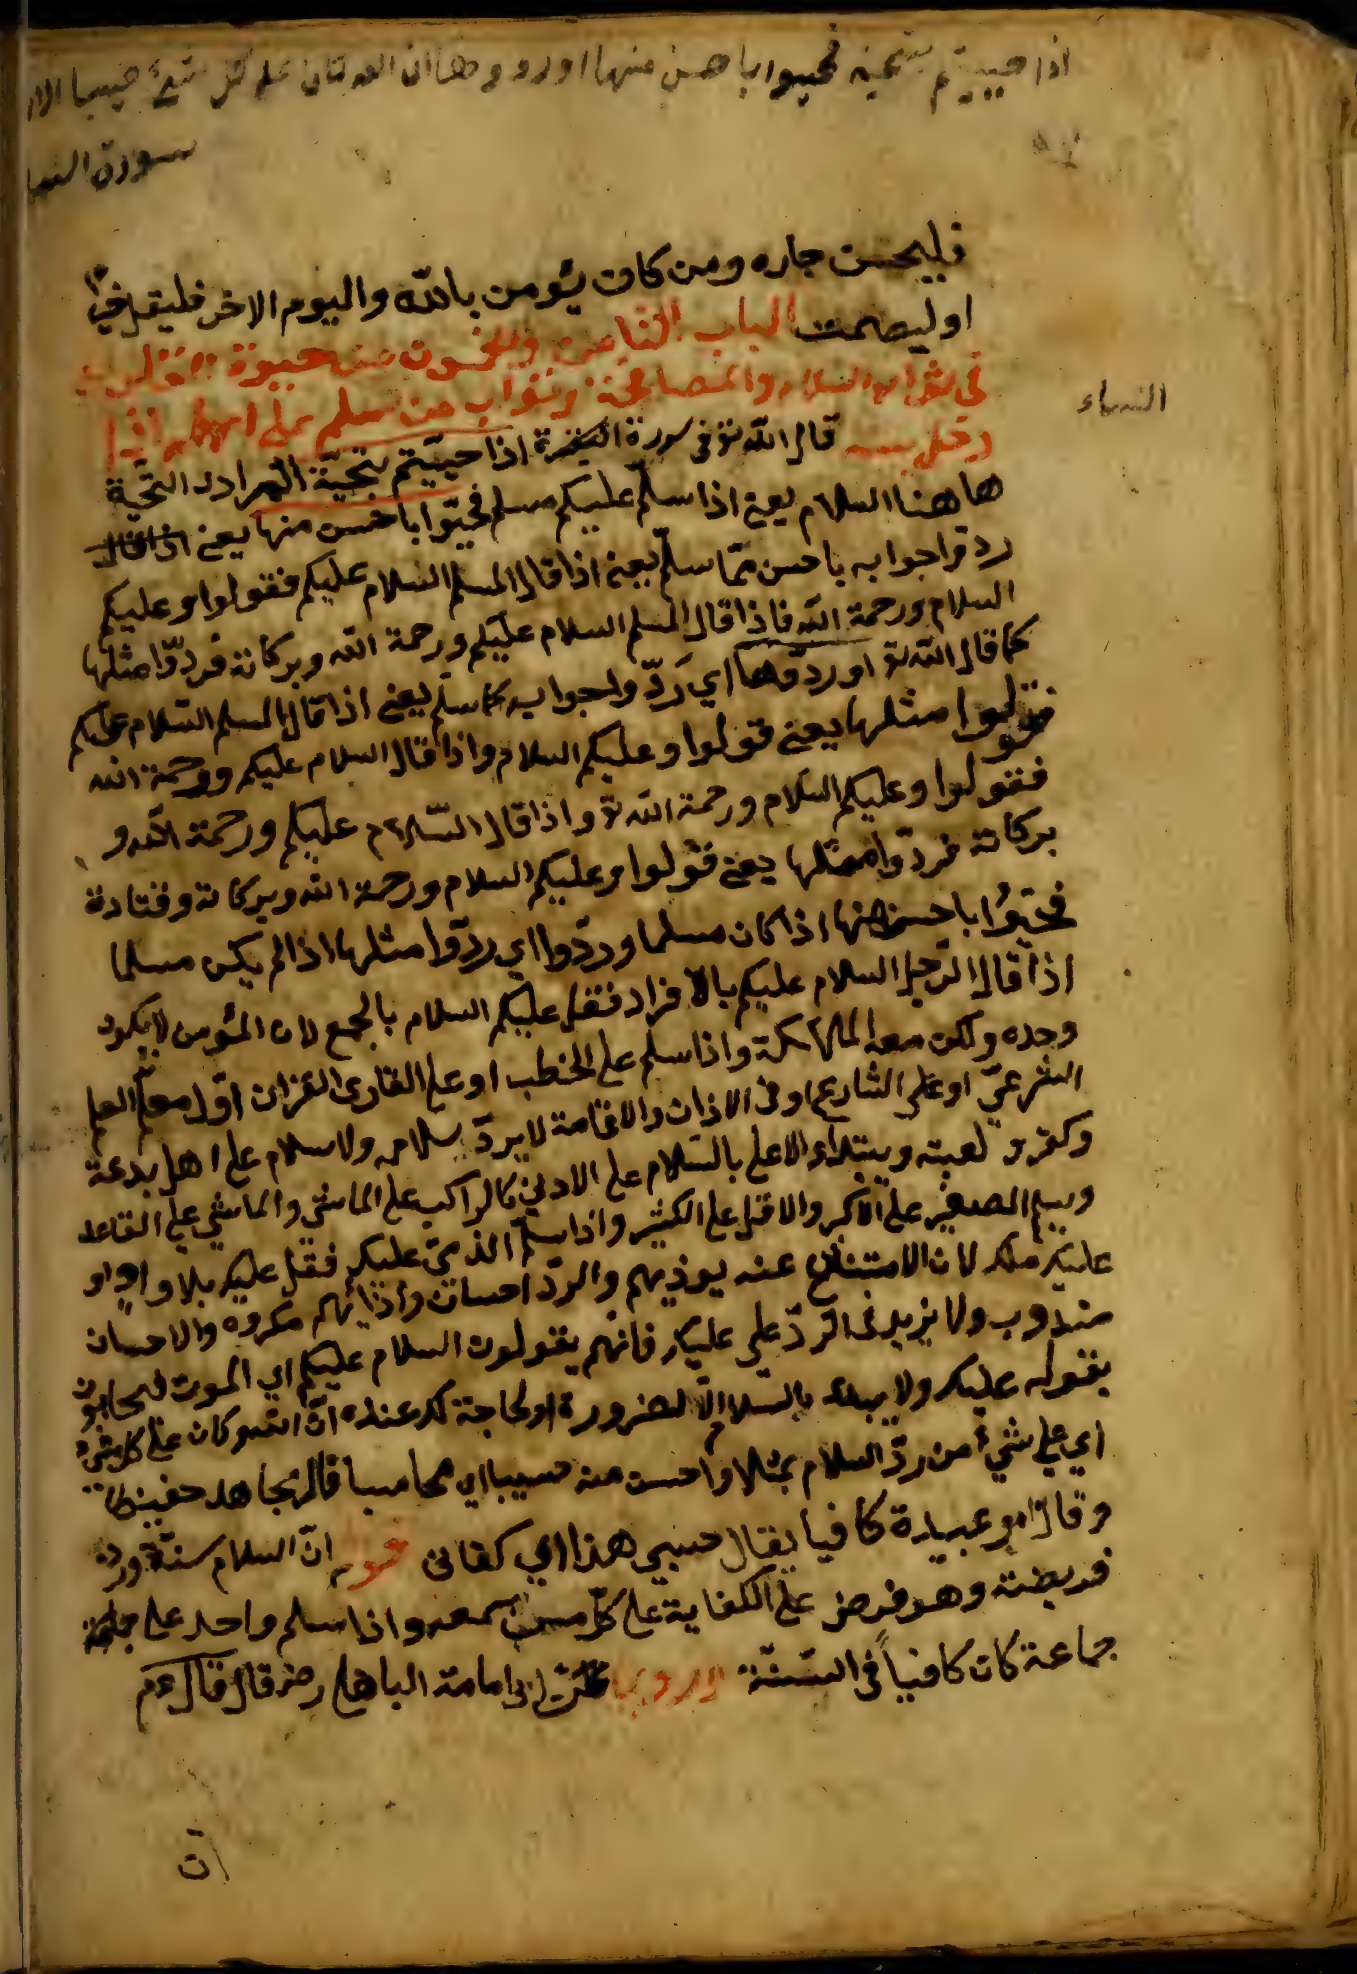 اذا حييتم بتحية فحيوا باحسن منها او ردوها ان الله كان على كل شئ حسيبا
سورة النسا
فليحسن جاره ومن كان يؤمن بالله واليوم الاخر فليقل خيرا
او ليصمت الباب الثامن والخمسون من حيوة القلوب
في ثواب السلام والمصافحة وثواب من سلم على
النساء
قال الله تع في سورة البقرة اذا حييتم بتحية المراد التحية
هاهنا السلام يعني اذا سلم عليكم مسلم فحيوا باحسن منها يعني اذا قال
ردوا جوابه باحسن مما سلم يعني اذا قال المسلم السلام عليكم فقولوا وعليكم
السلام ورحمة الله فاذا قال المسلم السلام عليكم ورحمة الله وبركاته فردوا مثلها
كما قال الله تع او ردوها اي ردوا جوابه كما سلم يعني اذا قال المسلم السلام عليكم
فقولوا مثلها يعني قولوا وعليكم السلام واذا قال السلام عليكم ورحمة الله
فقولوا وعليكم السلام ورحمة الله تع واذا قال السلام عليكم ورحمة الله و
بركاته فردوا مثلها يعني قولوا وعليكم السلام ورحمة الله وبركاته وقتادة
فحيوا باحسن منها اذا كان مسلما وردوا اي ردوا مثلها اذا لم يكن مسلما
اذا قال الرجل السلام عليكم بالافراد فقل عليكم السلام بالجمع لان المؤمن لا يكون
وحده ولكن معه الملائكة واذا سلم على الخطب او على القارئ القران او معلم العلم
الشرعي او على الشارع او في الاذان والاقامة لا يرد سلامه ولا سلام على اهل بدعة
وكفر ولعبة ويبتداء الاعلى بالسلام على الادنى كالراكب على الماشي والماشي على القاعد
ويسلم الصغير على الاكبر والاقل على الكثير واذا سلم الذمي عليكم فقل عليك بلا واو او
عليك مثله لان الامتناع عنه يوذيهم والرد احسان وأذائهم مكروه والاحسان
مندوب ولا يزيد في الرد على عليك فانهم يقولون السلام عليكم اي الموت فيجابون
بقوله عليك ولا يبداء بالسلام الا لضرورة او لحاجة له عنده ان الله كان على كل شئ
اي على شئ من رد السلام بمثله او احسن منه حسيبا اي محاسبا قال مجاهد حفيظا
وقال ابو عبيدة كافيا يقال حسبي هذا اي كفاني ان السلام سنة ورده
فريضة وهو فرض على الكفاية على كل من سمعه واذا سلم واحد على جماعة
جماعة كان كافيا في السنة وروي عن ابي امامة الباهلي رضي قال قال عم
ان